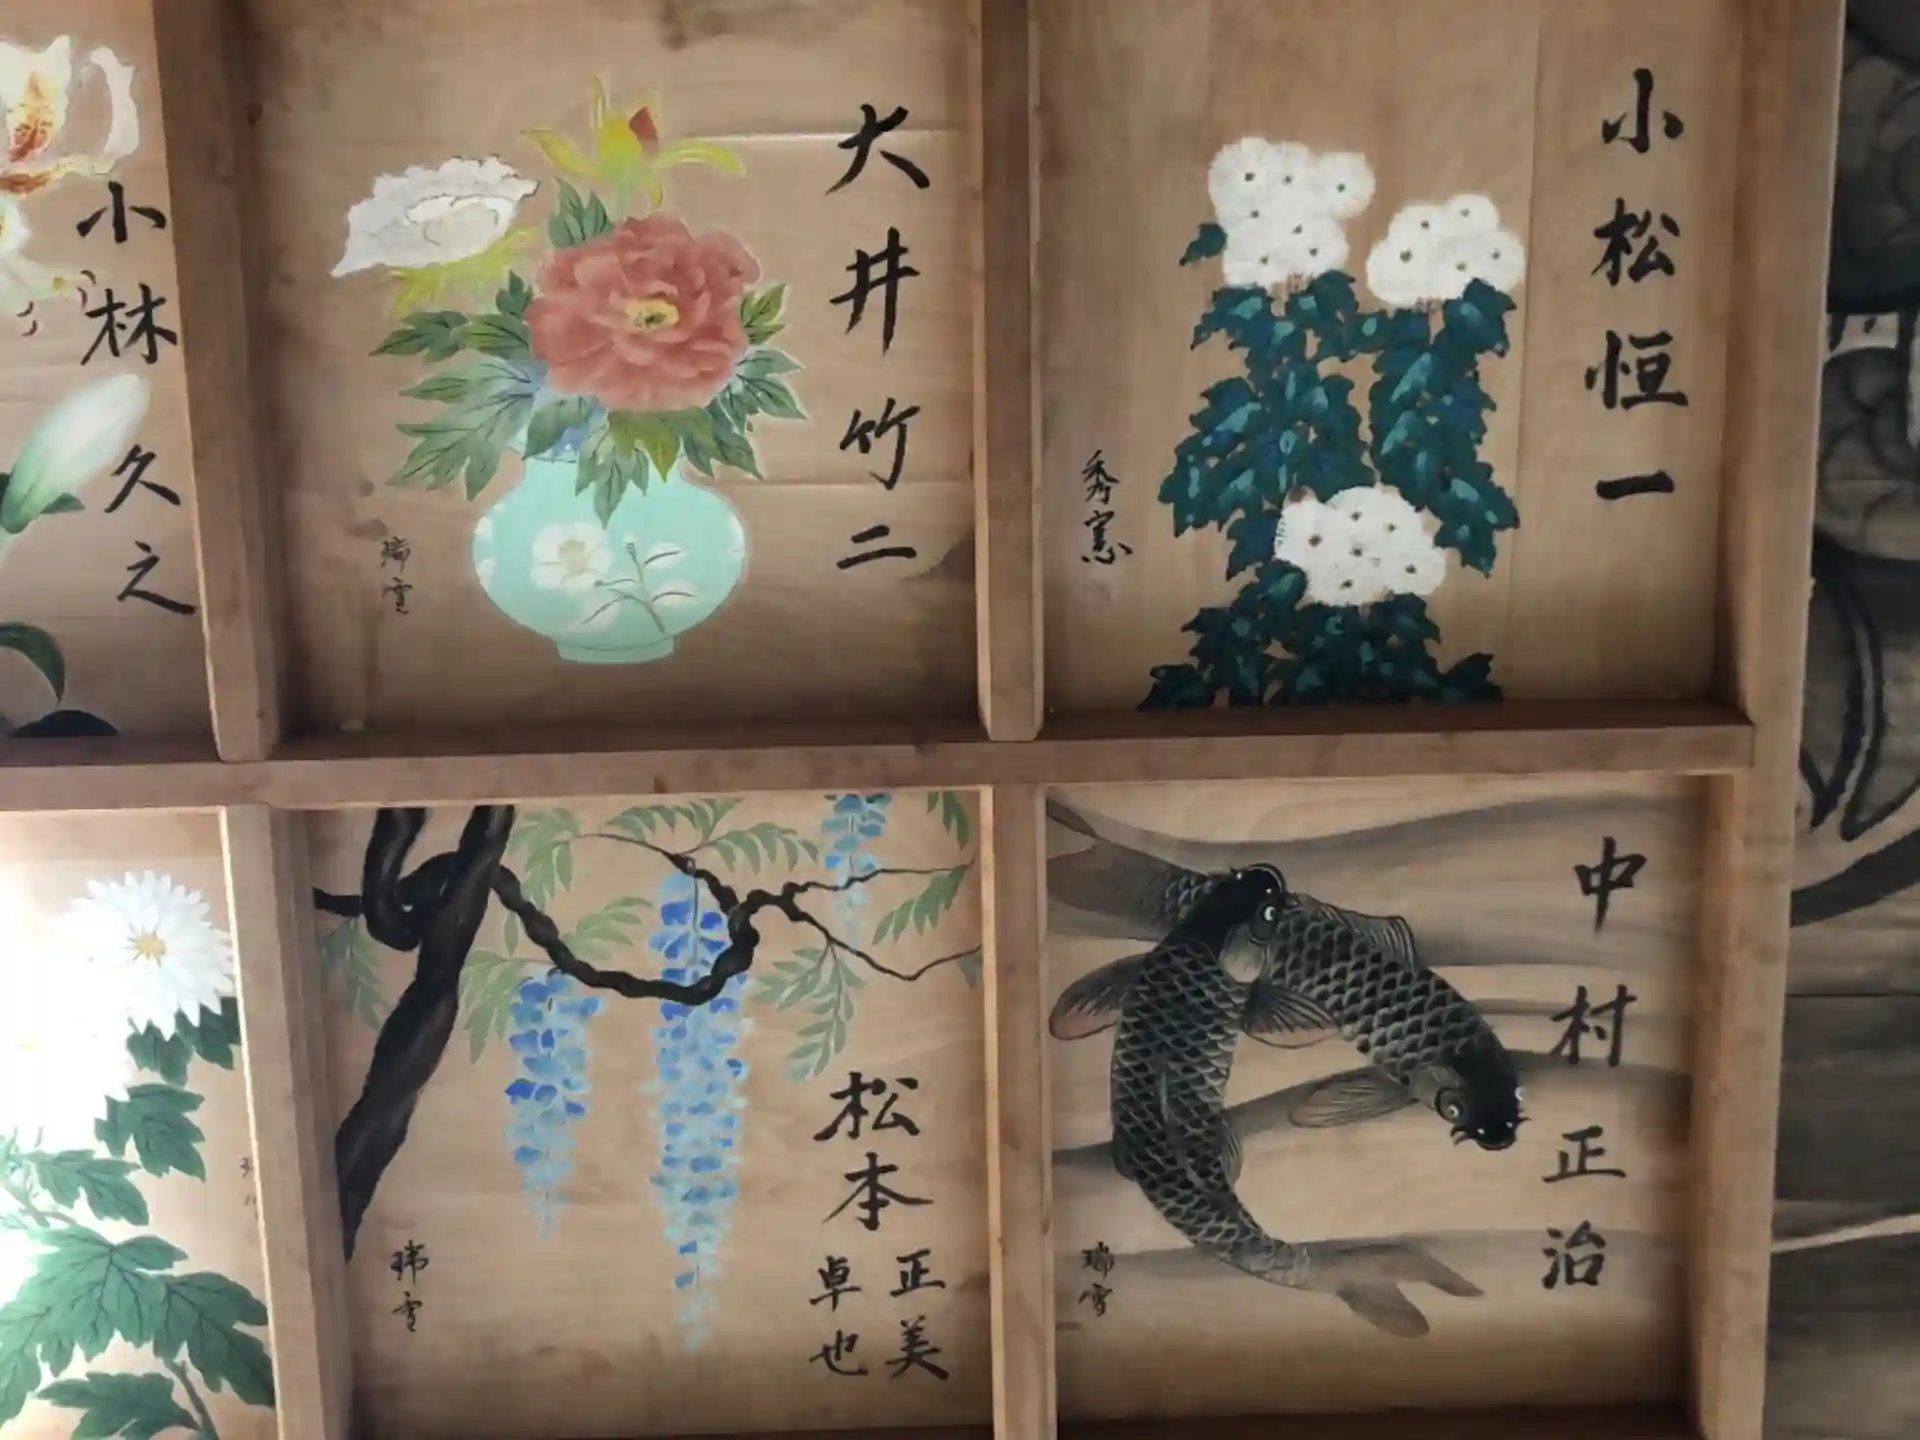 小松恒一
秀憲
大井竹二
瑞雪
小林久之
中村正治
瑞雪
松本
正美
卓也
瑞雪